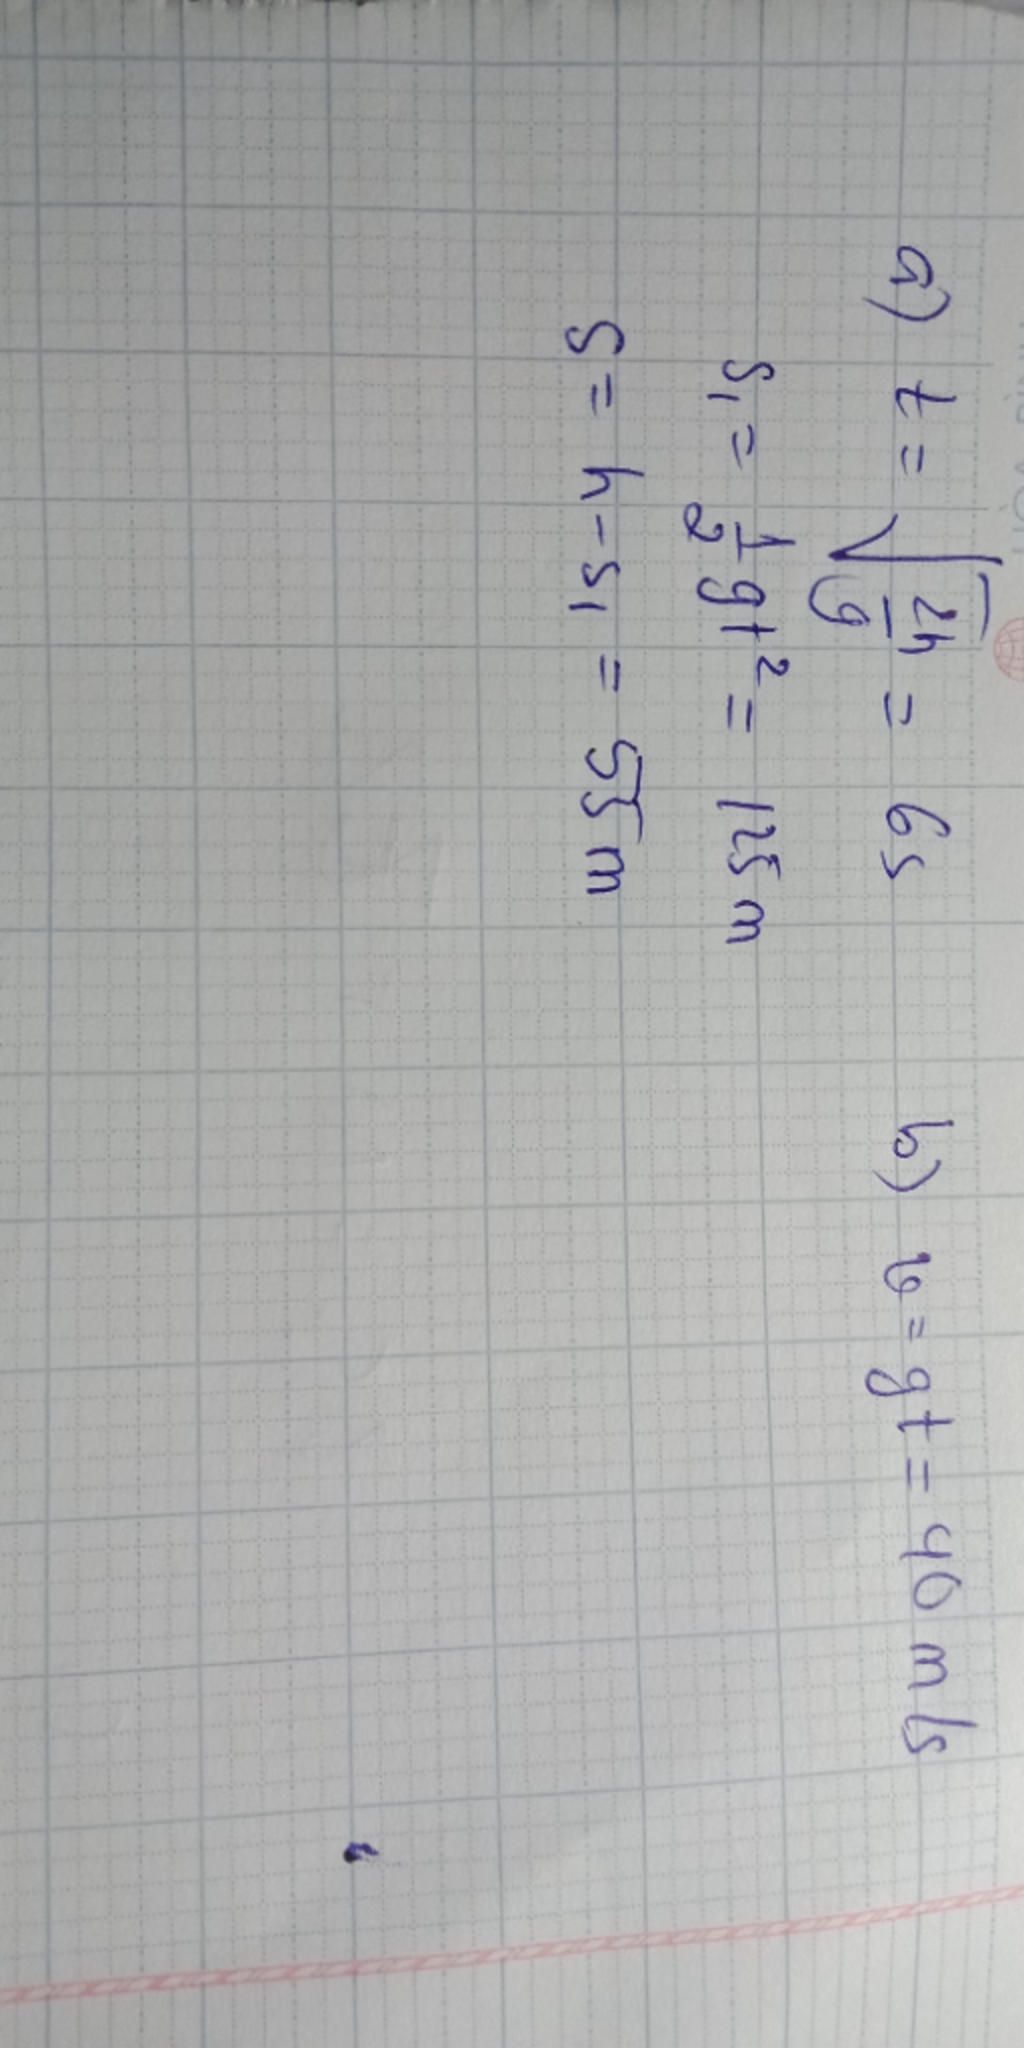 a) t = √(2h/g) = 6s
s₁ = 1/2 gt² = 125 m
S = h - s₁ = 55 m
b) v = gt = 40 m/s